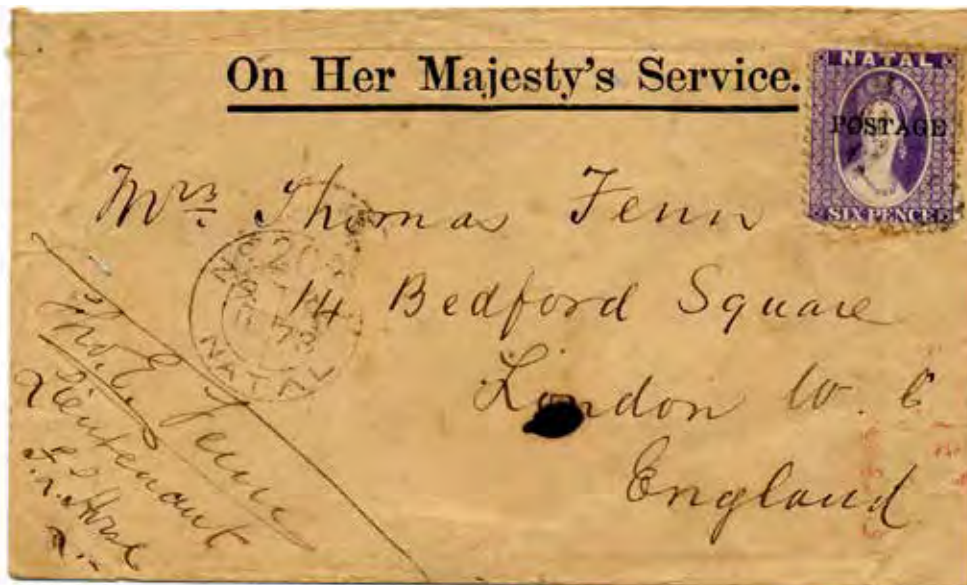 On Her Majesty's Service.
NATAL
POSTAGE
SIX PENCE
Mrs Thomas Fenn
14 Bedford Square
London W. C
England
NATAL
Fenn
Lieutenant